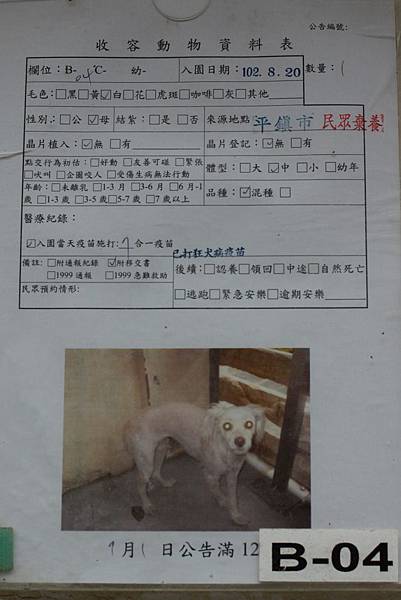 公告編號:
收容動物資料表
欄位:B-04 ℃- 幼- 入園日期:102.8.20 數量:1
毛色:□黑□黃☑白□花□虎斑□咖啡□灰□其他
性別:□公☑母 結紮:□是□否 來源地點 平鎮市 民眾棄養
晶片植入:☑無□有 晶片登記:☑無□有
點交行為初估:□好動 □友善可碰 □緊張
□吠叫 □企圖咬人 □受傷生病無法行動
體型:□大☑中□小□幼年
年齡:□未離乳 □1-3月 □3-6月 □6月-1
歲 □1-3歲 □3-5歲□5-7歲 □7歲以上
品種:☑混種 □
醫療紀錄:
☑入園當天疫苗施打:7合一疫苗
已打狂犬病疫苗
備註:□附通報紀錄 ☑附移交書
□1999通報 □1999急難救助
後續:□認養□領回□中途□自然死亡
民眾預約情形:
□逃跑□緊急安樂□逾期安樂
9月1日公告滿12
B-04